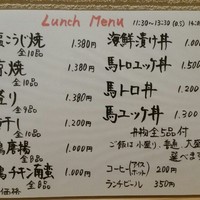 Lunch Menu 11:30~13:30 (o.s) 14:
塩こうじ焼 1.380円
全10品
焼 1.380円
全10品
釜り 1.380円
全9品
干し 1.200円
全10品
鶏唐揚 1.000円
全8品
鶏チキン南蛮 1.000円
全8品
価格
海鮮漬け丼 1.000
馬トロユッケ丼 1.500
馬トロ丼 1.200
馬ユッケ丼 1.300
丼物全5品付
ご飯は小盛り、普通、大盛
選べます
コーヒー(アイス ホット) 200円
ランチビール 350円